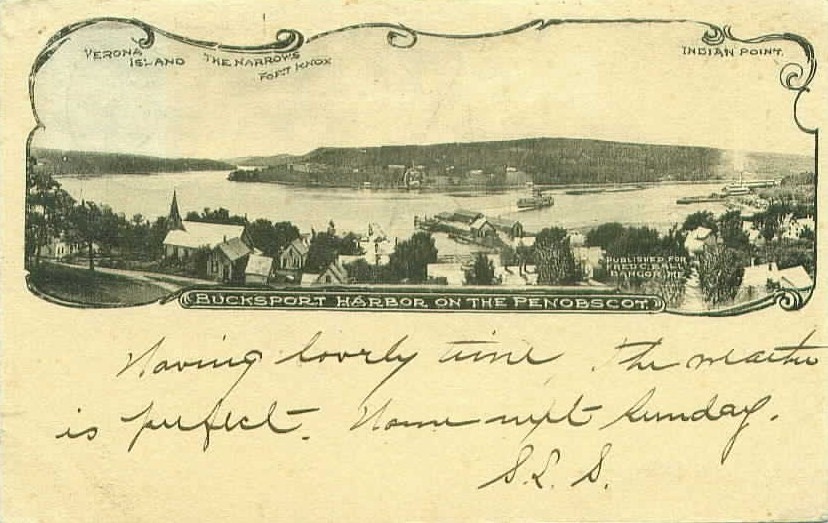 VERONA ISLAND
THE NARROWS
FORT KNOX
INDIAN POINT.
PUBLISHED FOR
FRED C. BALL
BANGOR, ME.
BUCKSPORT HARBOR ON THE PENOBSCOT.
Having lovely time, The weather
is perfect. Home next Sunday.
S. L. S.